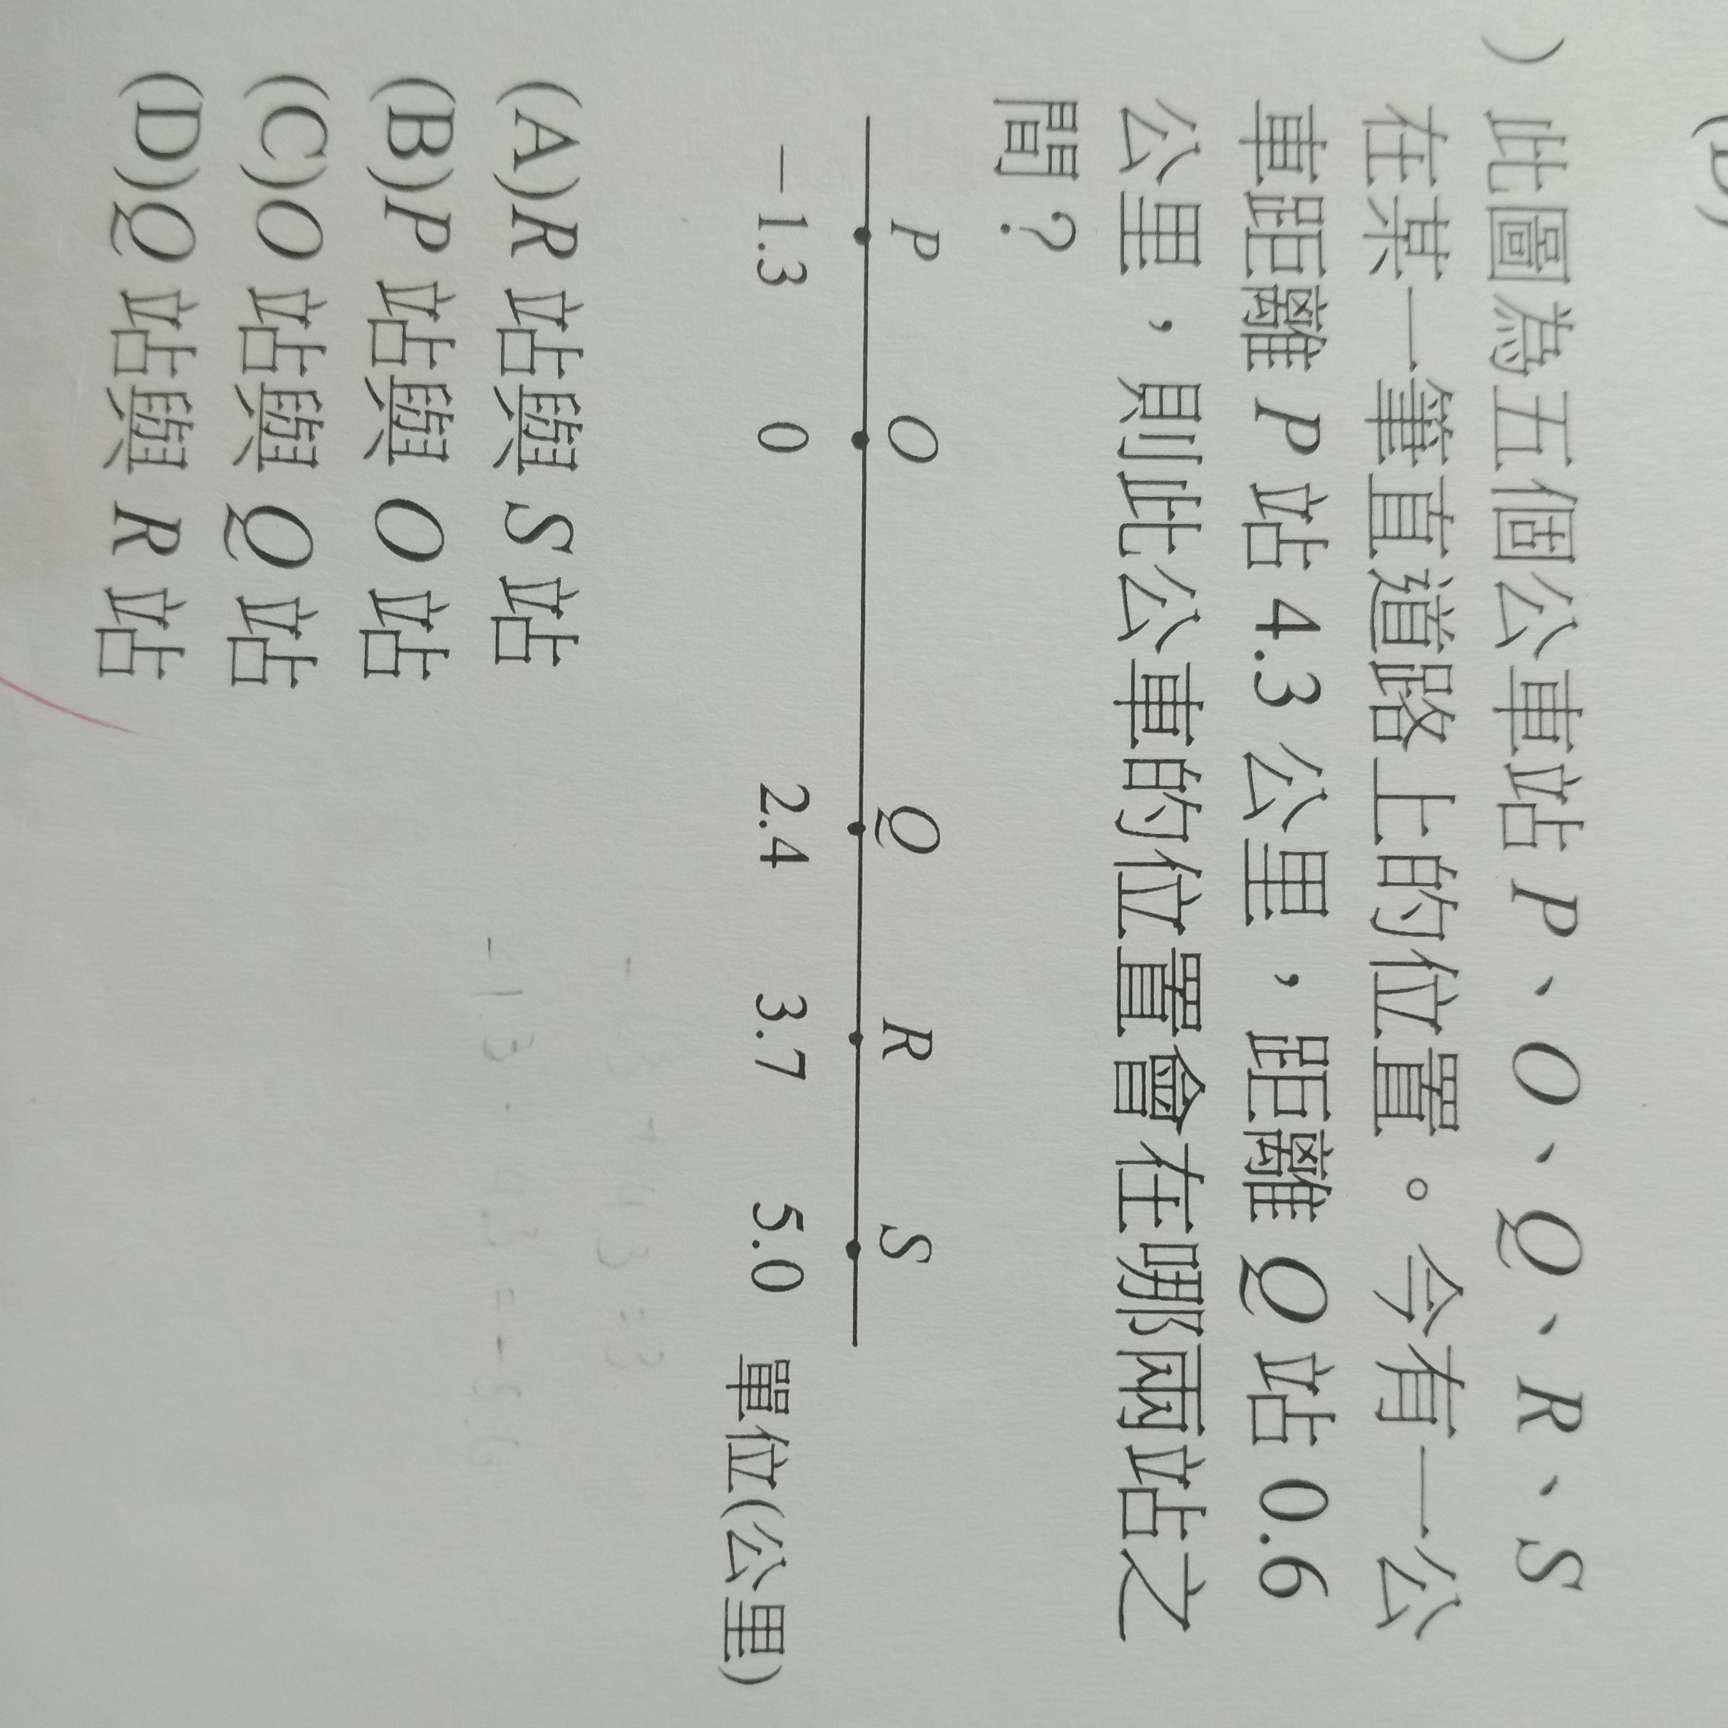 ）此圖為五個公車站 P、O、Q、R、S
在某一筆直道路上的位置。今有一公
車距離 P 站 4.3 公里，距離 Q 站 0.6
公里，則此公車的位置會在哪兩站之
間？
P O Q R S
−1.3 0 2.4 3.7 5.0 單位(公里)
(A)R 站與 S 站
(B)P 站與 O 站
(C)O 站與 Q 站
(D)Q 站與 R 站